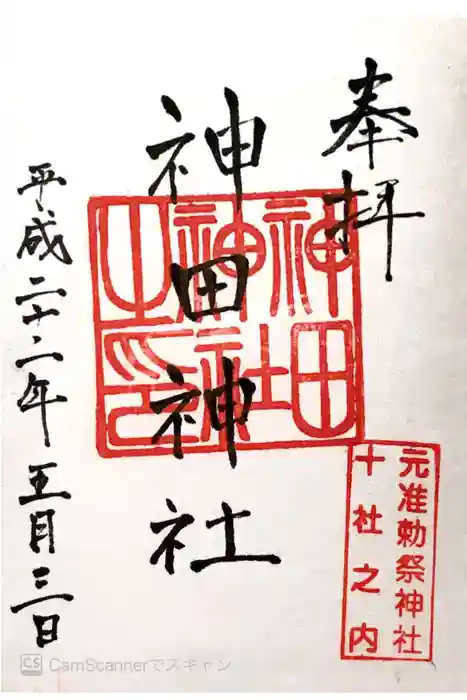 奉拝
元准勅祭神社
十社之内
神田神社
神田
神社
之印
平成二十二年五月三日
CamScannerでスキャン